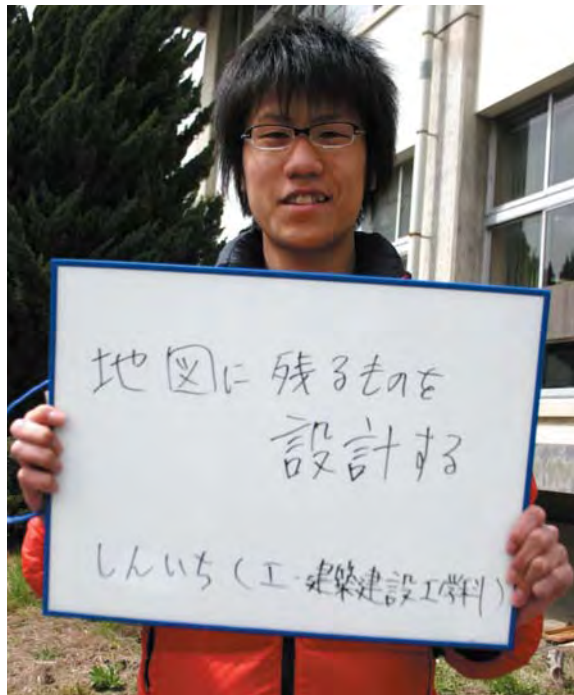 地図に 残るものを
設計する
しんいち (工・建築建設工学科)